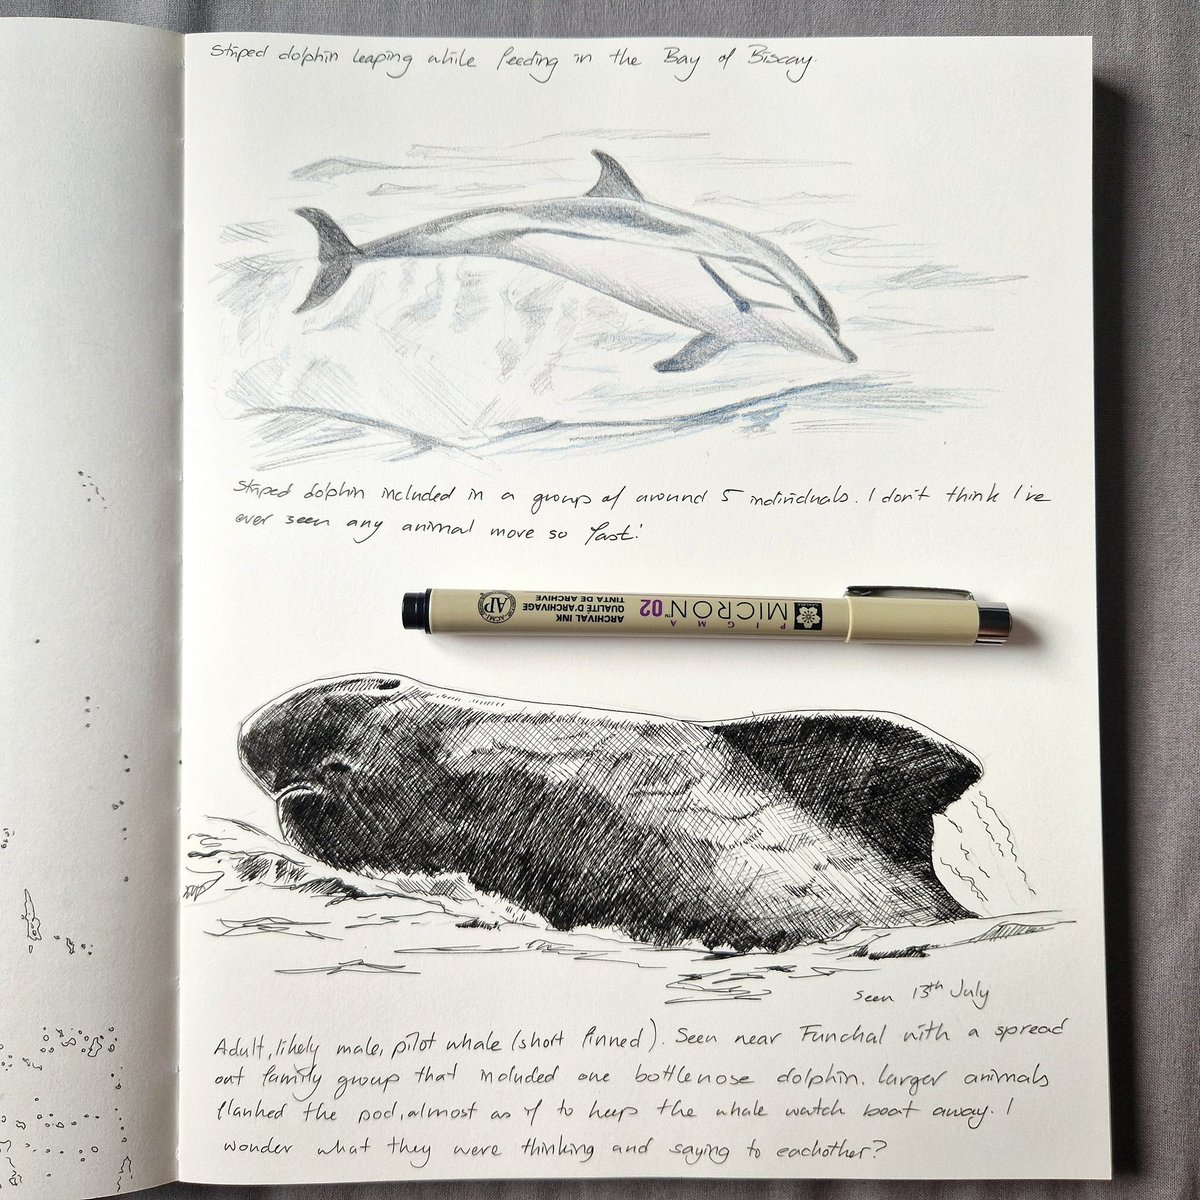 Striped dolphin leaping while feeding in the Bay of Biscay.
Striped dolphin included in a group of around 5 individuals. I don't think I've
ever seen any animal move so fast!
PIGMA
MICRON™ 02
ARCHIVAL INK
QUALITÉ D'ARCHIVAGE
TINTA DE ARCHIVE
AP
seen 13th July
Adult, likely male, pilot whale (short finned). Seen near Funchal with a spread
out family group that included one bottlenose dolphin. Larger animals
flanked the pod, almost as if to keep the whale watch boat away. I
wonder what they were thinking and saying to eachother?